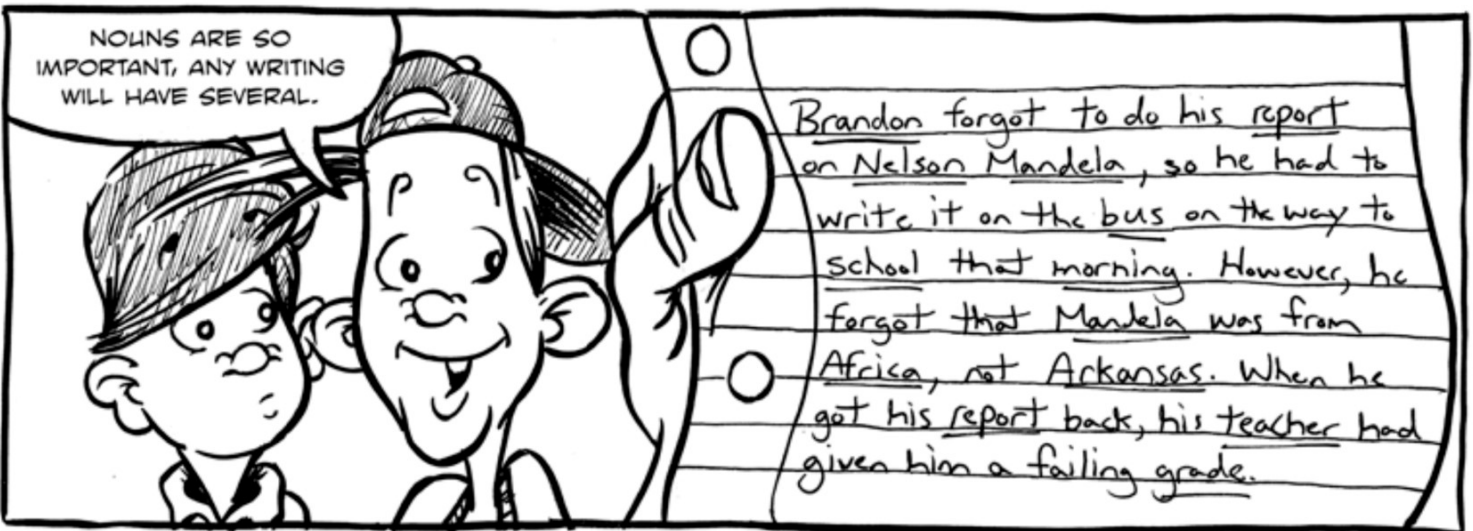 NOUNS ARE SO
IMPORTANT, ANY WRITING
WILL HAVE SEVERAL.
Brandon forgot to do his report
on Nelson Mandela, so he had to
write it on the bus on the way to
school that morning. However, he
forgot that Mandela was from
Africa, not Arkansas. When he
got his report back, his teacher had
given him a failing grade.